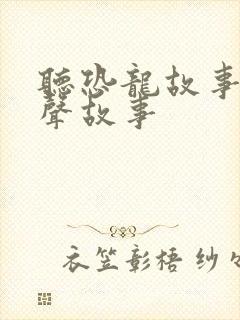 聽恐龍故事
聲故事
衣笠彰梧 纱